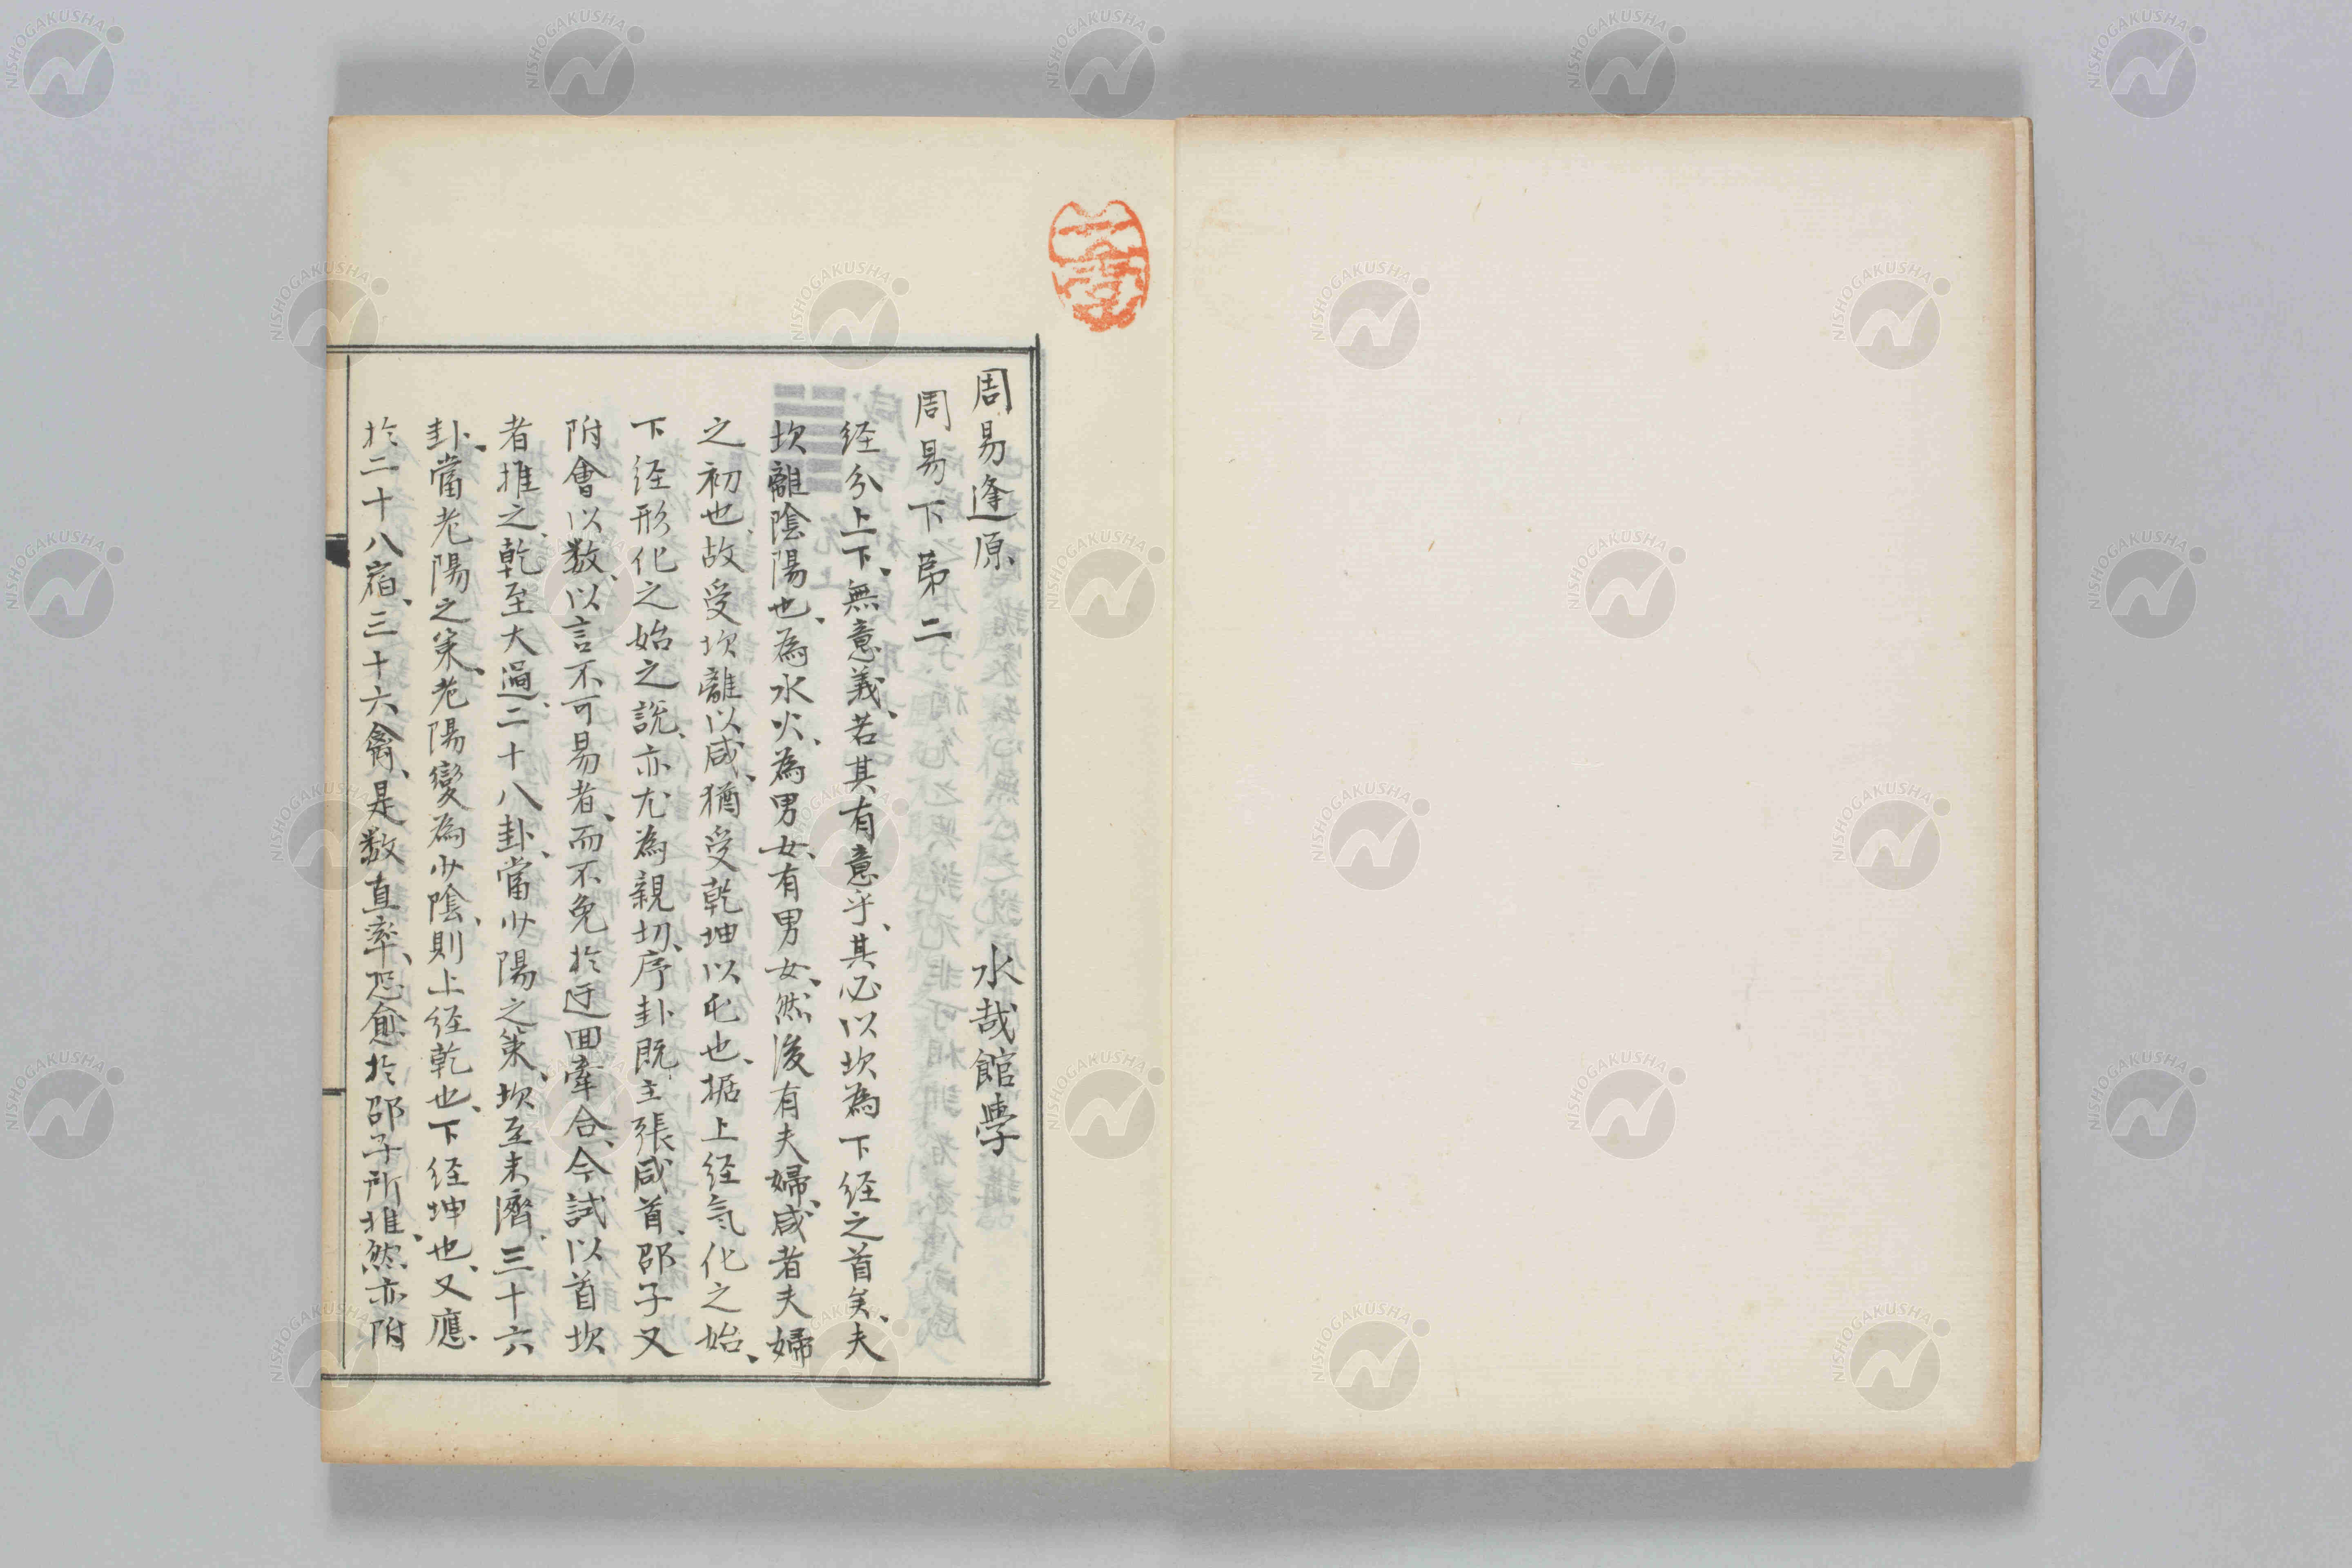 周易逢原　水哉館學
周易下苐二
経分上下、無意義、若其有意乎、其必以坎為下経之首矣、夫
坎離陰陽也、為水火、為男女、有男女、然後有夫婦、咸者夫婦
之初也、故受坎離以咸、猶受乾坤以屯也、据上経氣化之始、
下経形化之始之說、亦尤為親切、序卦既主張咸首、邵子又
附會以数、以言不可易者、而不免於迂回牽合、今試以首坎
者推之、乾至大過、二十八卦、當少陽之策、坎至未濟、三十六
卦、當老陽之策、老陽變為少陰、則上経乾也、下経坤也、又應
於二十八宿、三十六禽、是数直率、恐愈於邵子所推、然亦附
NISHOGAKUSHA